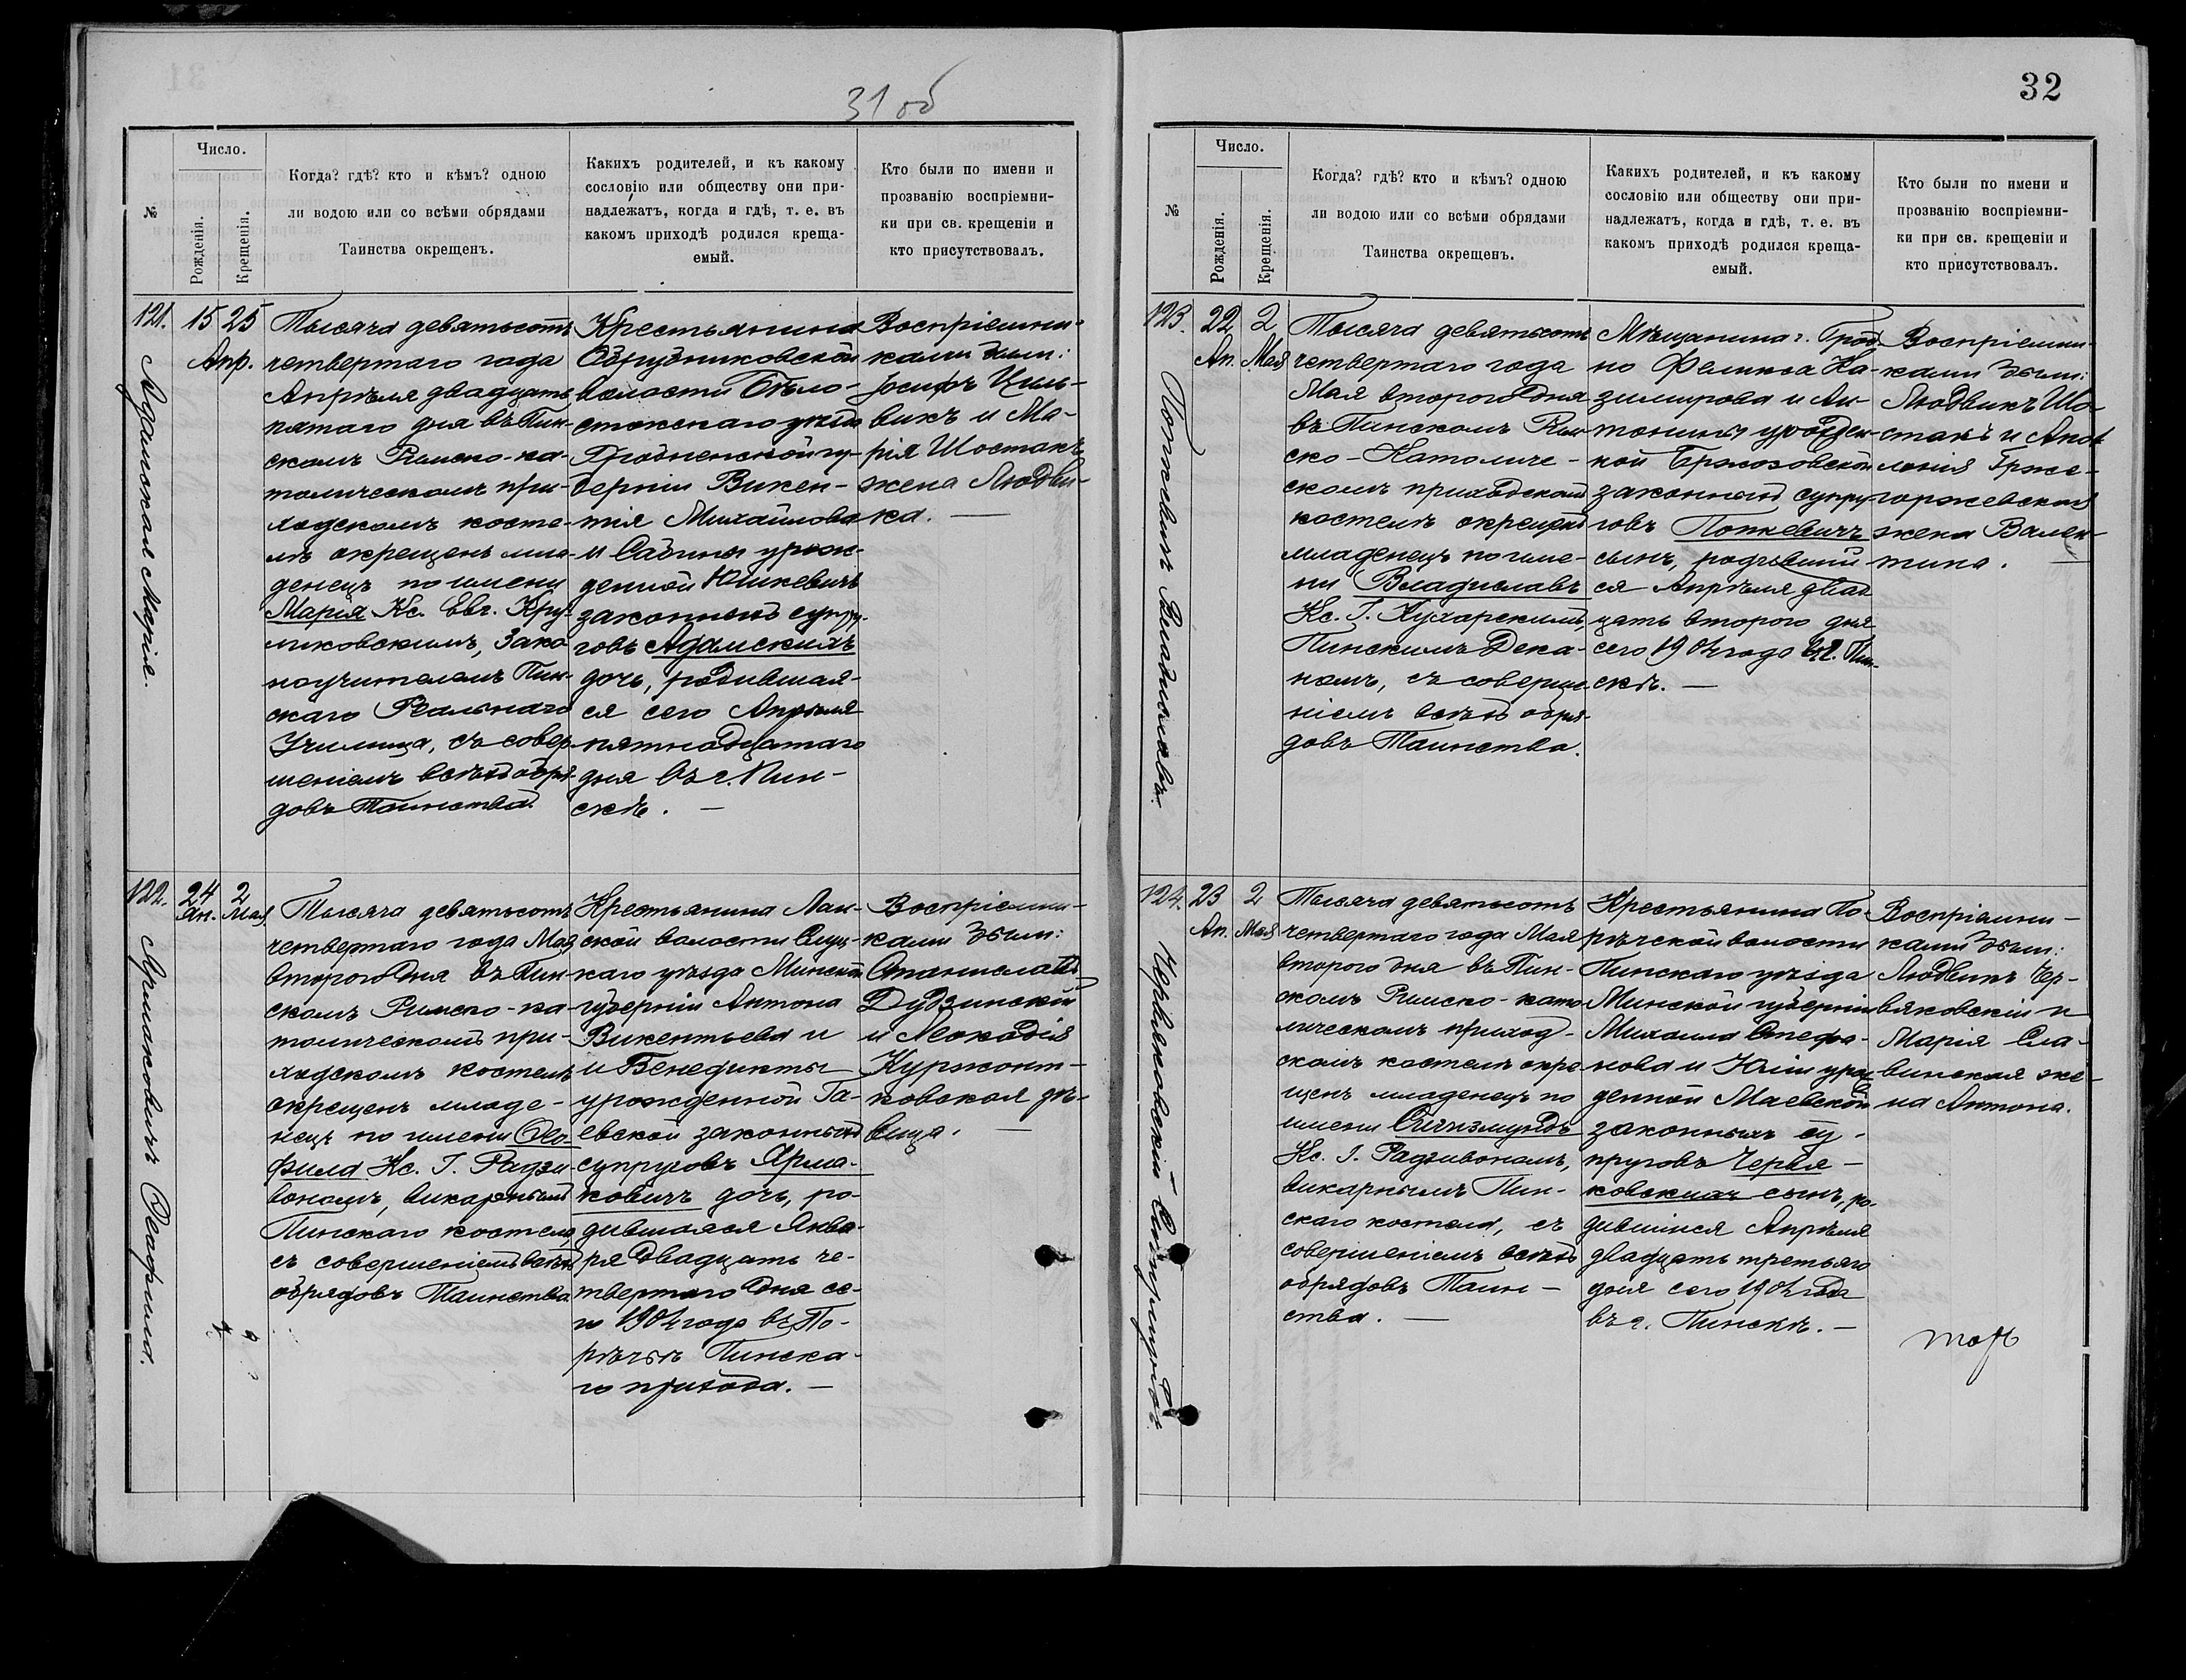 31 об
№
Число.
Рожденія.
Крещенія.
Когда? гдѣ? кто и кѣмъ? одною
ли водою или со всѣми обрядами
Таинства окрещенъ.
Какихъ родителей, и къ какому
сословію или обществу они при-
надлежатъ, когда и гдѣ, т. е. въ
какомъ приходѣ родился креща-
емый.
Кто были по имени и
прозванію воспріемни-
ки при св. крещеніи и
кто присутствовалъ.
121.
Адамская Марія.
15 25
Апр.
Тысяча девятьсотъ
четвертаго года
Апрѣля двадцать
пятаго дня въ Пин-
скомъ Римско-ка-
толическомъ при-
ходскомъ косте-
лѣ окрещенъ мла-
денецъ по имени
Марія Кс. Евг. Кру-
ликовскимъ, Зако-
ноучителемъ Пин-
скаго Реальнаго
Училища, съ совер-
шеніемъ всѣхъ обря-
довъ Таинства.
Крестьянина
волости Бѣло-
стокскаго уѣзда
Гродненской гу-
берніи Викен-
тія Михайлова
и Сабины урож-
денной Юшкевичъ
законныхъ супру-
говъ Адамскихъ
дочь, родившая-
ся сего Апрѣля
пятнадцатаго
дня въ г. Пин-
скѣ. —
Воспріемни-
ками были:
Іосифъ Циль-
викъ и Ма-
рія Шостакъ
жена Людви-
ка. —
122.
Ярмаковичъ Теофила.
24 2
Ян. Мая
Тысяча девятьсотъ
четвертаго года Мая
второго дня въ Пин-
скомъ Римско-ка-
толическомъ при-
ходскомъ костелѣ
окрещенъ младе-
нецъ по имени Ѳео-
фила Кс. І. Радзи-
вономъ, викарнымъ
Пинскаго костела,
съ совершеніемъ всѣхъ
обрядовъ Таинства
Крестьянина Лан-
ской волости Слуц-
каго уѣзда Минской
губерніи Антона
Викентьева и
и Бенедикты
урожденной Га-
евской законныхъ
супруговъ Ярма-
ковичъ дочь, ро-
дившаяся Янва-
ря двадцать че-
твертаго дня се-
го 1904 года въ По-
рѣчьѣ Пинска-
го прихода. —
Воспріемни-
ками были:
Станиславъ
Дудзинскій
и Леокадія
Куржонт-
ковская дѣ-
вица. —
32
№
Число.
Рожденія.
Крещенія.
Когда? гдѣ? кто и кѣмъ? одною
ли водою или со всѣми обрядами
Таинства окрещенъ.
Какихъ родителей, и къ какому
сословію или обществу они при-
надлежатъ, когда и гдѣ, т. е. въ
какомъ приходѣ родился креща-
емый.
Кто были по имени и
прозванію воспріемни-
ки при св. крещеніи и
кто присутствовалъ.
123.
Попкевичъ Владиславъ.
22 2
Ап. Мая
Тысяча девятьсотъ
четвертаго года
Мая второго дня
въ Пинскомъ Рим-
ско-Католиче-
скомъ приходскомъ
костелѣ окрещенъ
младенецъ по име-
ни Владиславъ
Кс. І. Кухарскимъ,
Пинскимъ Дека-
номъ, съ соверше-
ніемъ всѣхъ обря-
довъ Таинства.
Мѣщанина г. Грод-
но Феликса Ка-
зимирова и Ан-
тонины урожден-
ной Бржозовской
законныхъ супру-
говъ Попкевичъ
сынъ, родившій-
ся Апрѣля двад-
цать второго дня
сего 1904 года въ г. Пин-
скѣ. —
Воспріемни-
ками были:
Людвикъ Шо-
стакъ и Апол-
лонія Грже-
горжевская
жена Вален-
тина. —
124.
Червяковскій Сигизмундъ.
23 2
Ап. Мая
Тысяча девятьсотъ
четвертаго года Мая
второго дня въ Пин-
скомъ Римско-като-
лическомъ приход-
скомъ костелѣ окре-
щенъ младенецъ по
имени Сигизмундъ
Кс. І. Радзивономъ,
викарнымъ Пин-
скаго костела, съ
совершеніемъ всѣхъ
обрядовъ Таин-
ства. —
Крестьянина По-
рѣчской волости
Пинскаго уѣзда
Минской губерніи
Михаила Стефа-
нова и Юліи урож-
денной Маевской
законныхъ су-
пруговъ Червя-
ковскихъ сынъ, ро-
дившійся Апрѣля
двадцать третьяго
дня сего 1904 года
въ г. Пинскѣ. —
Воспріемни-
ками были:
Людвикъ Чер-
вяковскій и
Марія Сла-
винская же-
на Антона.